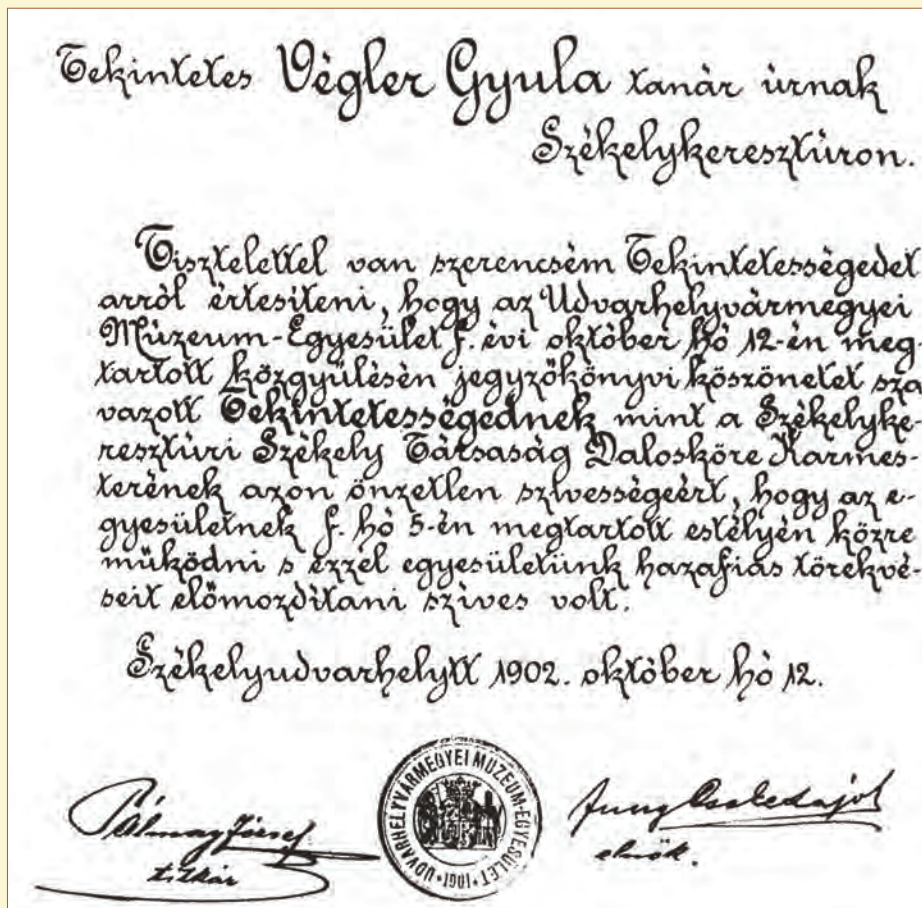 Tekintetes Végler Gyula tanár úrnak
Székelykeresztúron.
Tisztelettel van szerencsém Tekintetességedet
arról értesíteni, hogy az Udvarhelyvármegyei
Múzeum-Egyesület f. évi október hó 12-én meg-
tartott közgyülésén jegyzőkönyvi köszönetet sza
vazott Tekintetességednek mint a Székelyke-
resztúri Székely Társaság Dalosköre Karmes-
terének azon önzetlen szivességeért, hogy az e-
gyesületnek f. hó 5-én megtartott estélyén közre
müködni s ezzel egyesületünk hazafias törekvé-
seit előmozdítani szíves volt.
Székelyudvarhelytt 1902. október hó 12.
UDVARHELYVÁRMEGYEI MÚZEUM-EGYESÜLET · 1901 ·
Pálmay József
titkár
elnök.